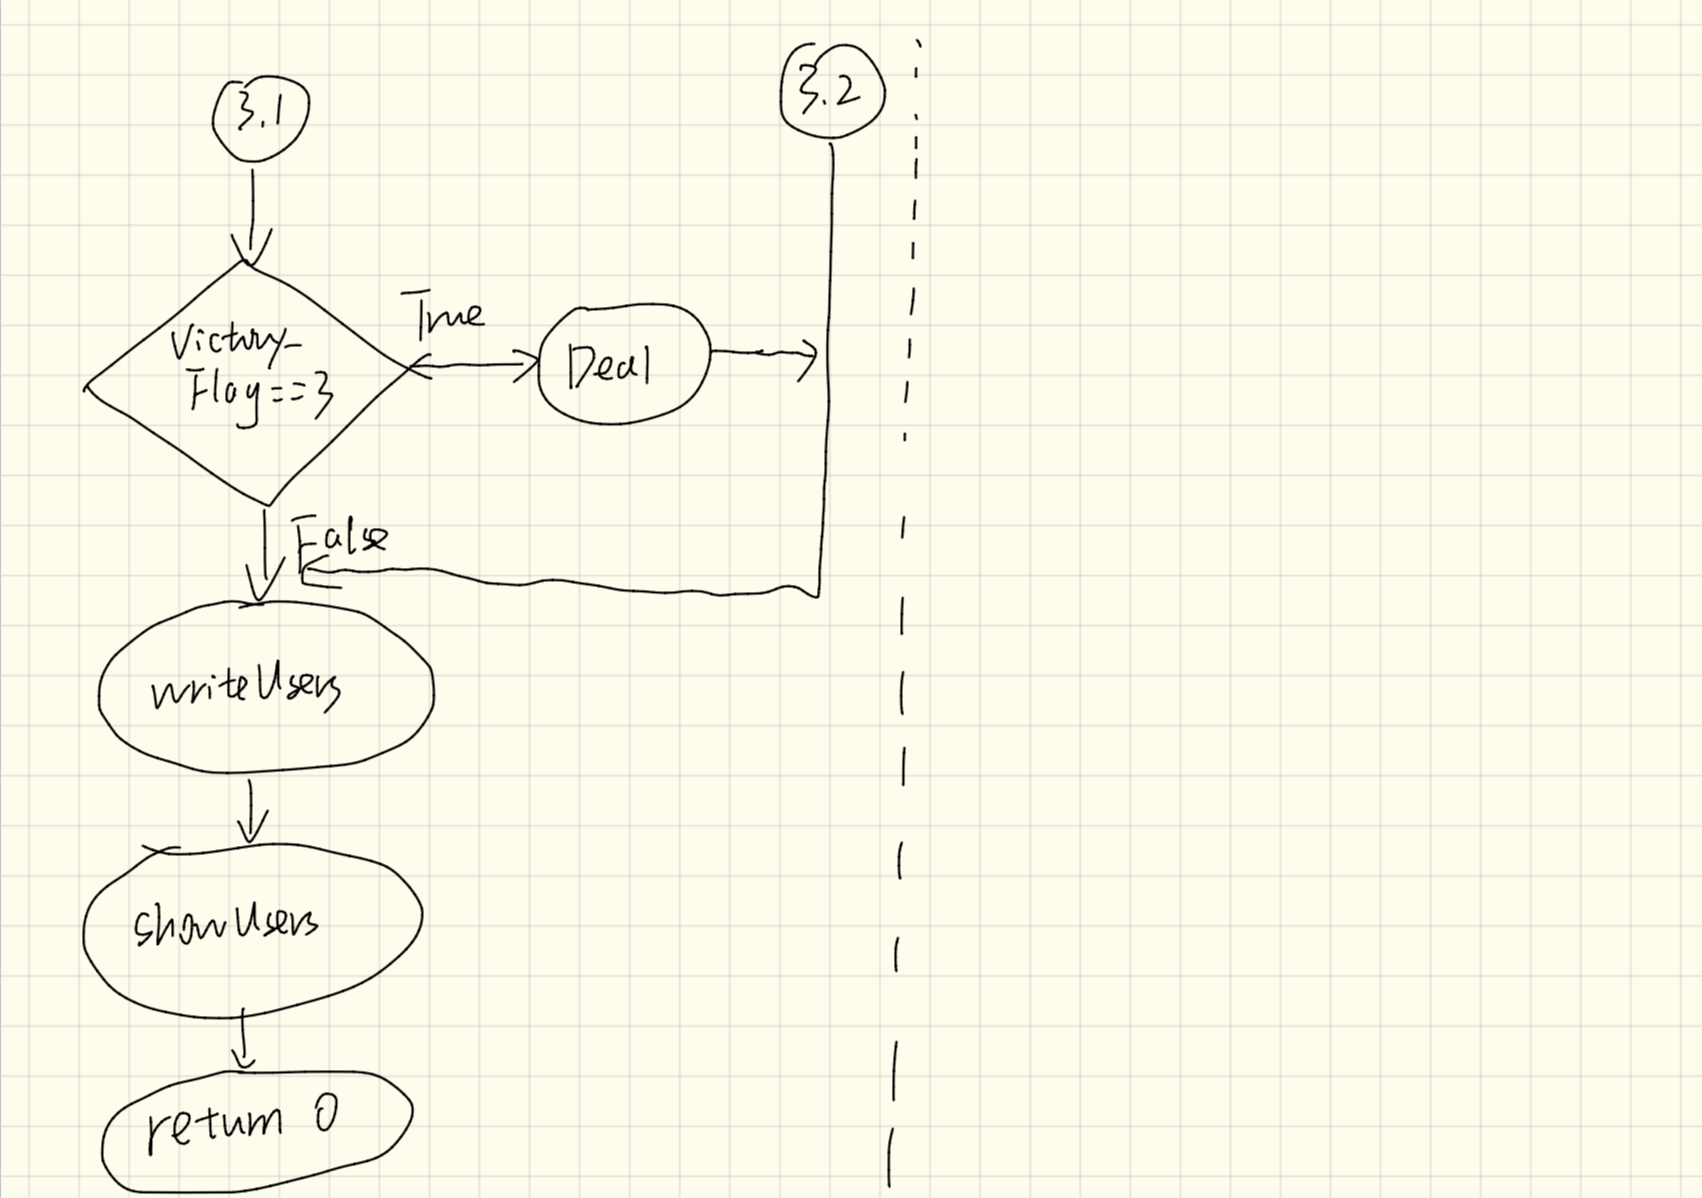 3.1
3.2
True
Victory_
Flag==3
Deal
False
writeUsers
showUsers
return 0